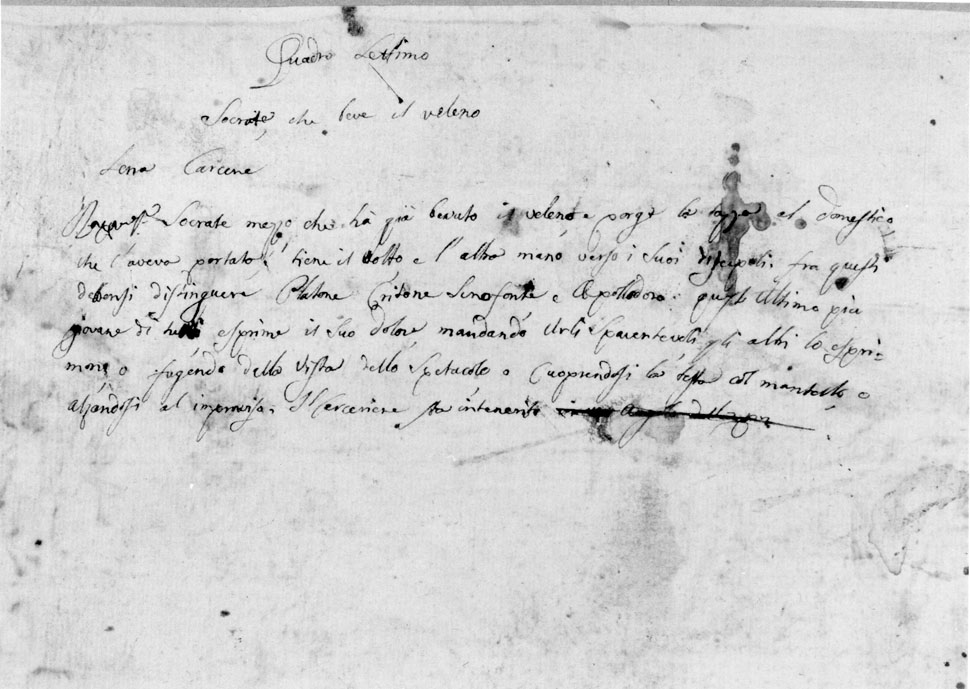 Quadro Settimo
Socrate, che beve il veleno
Scena Carcere
Socrate mezo che há giá bevuto il veleno e porge la tazza al domestico
che l'aveva portato, tiene il volto e l'altra mano verso i suoi discepoli. fra questi
debonsi distinguere Platone Critone Senofonte e Apollodoro: questo ultimo piu
giovane di tutti esprime il suo dolore mandando urli spaventevoli, gli altri lo espri=
mono o fugendo della vista dello spetacolo o cuoprendosi la testa col mantello o
alzandosi al improviso, Il Carceriere sta intenerito